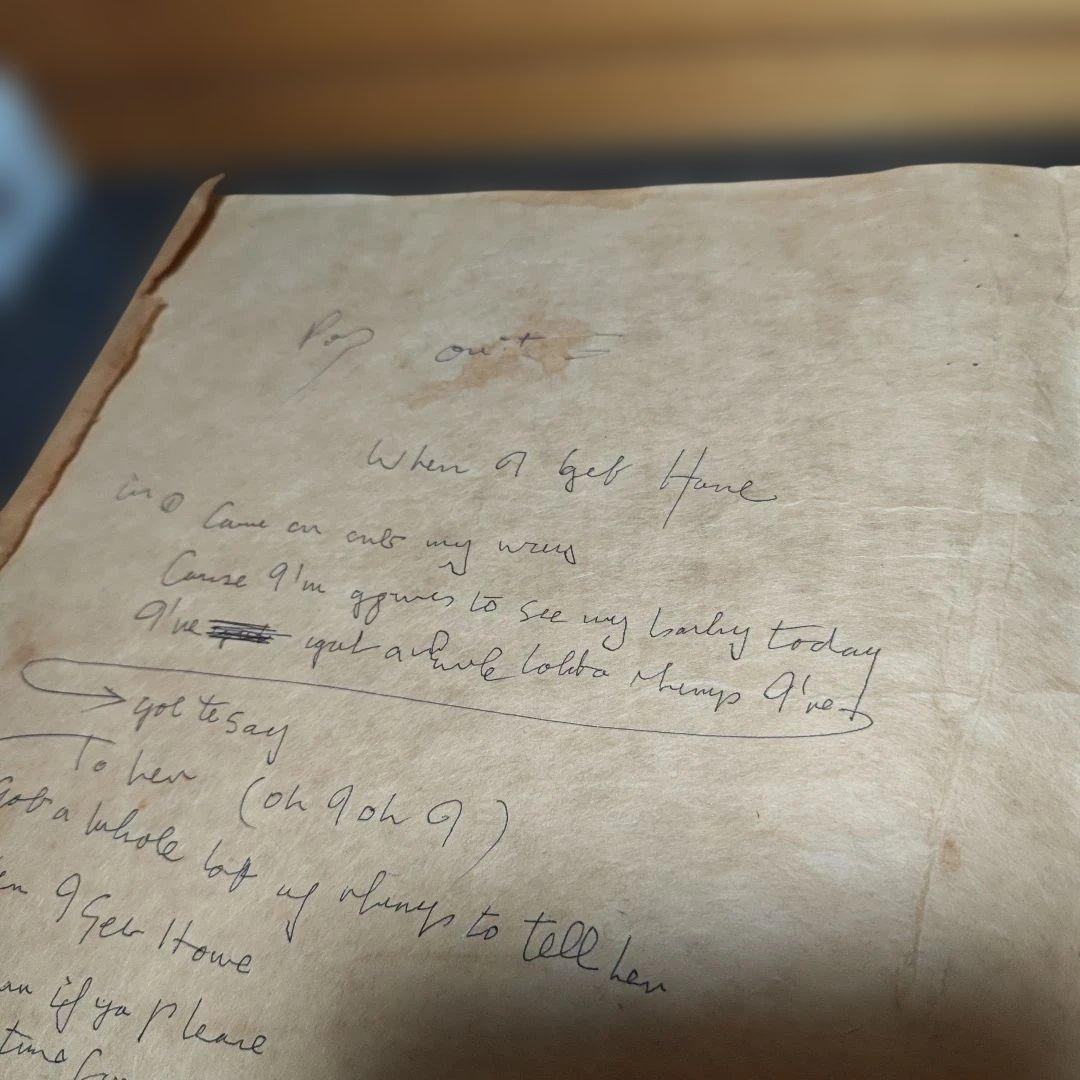 Pop out
When I get Home
in ① Come on out my way
Cause I'm going to see my baby today
I've got a whole lotta things I've
got to say
To her (oh I oh I)
Got a whole lot of things to tell her
I Get Home
if ya please